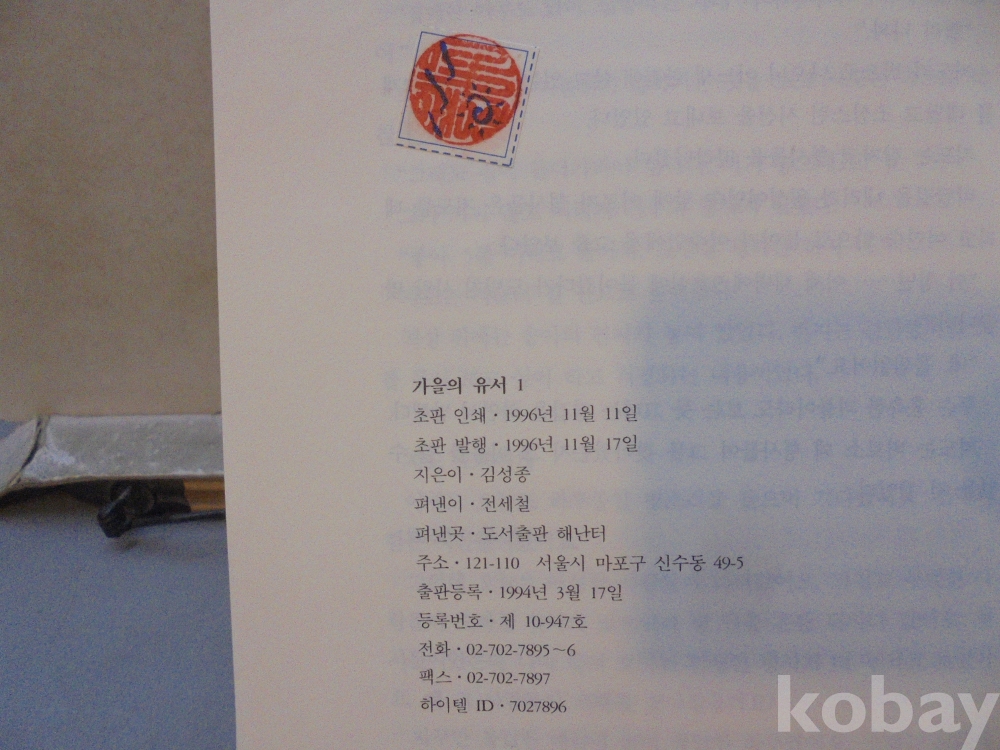 가을의 유서 1
초판 인쇄 · 1996년 11월 11일
초판 발행 · 1996년 11월 17일
지은이 · 김성종
펴낸이 · 전세철
펴낸곳 · 도서출판 해난터
주소 · 121-110 서울시 마포구 신수동 49-5
출판등록 · 1994년 3월 17일
등록번호 · 제 10-947호
전화 · 02-702-7895~6
팩스 · 02-702-7897
하이텔 ID · 7027896
kobay